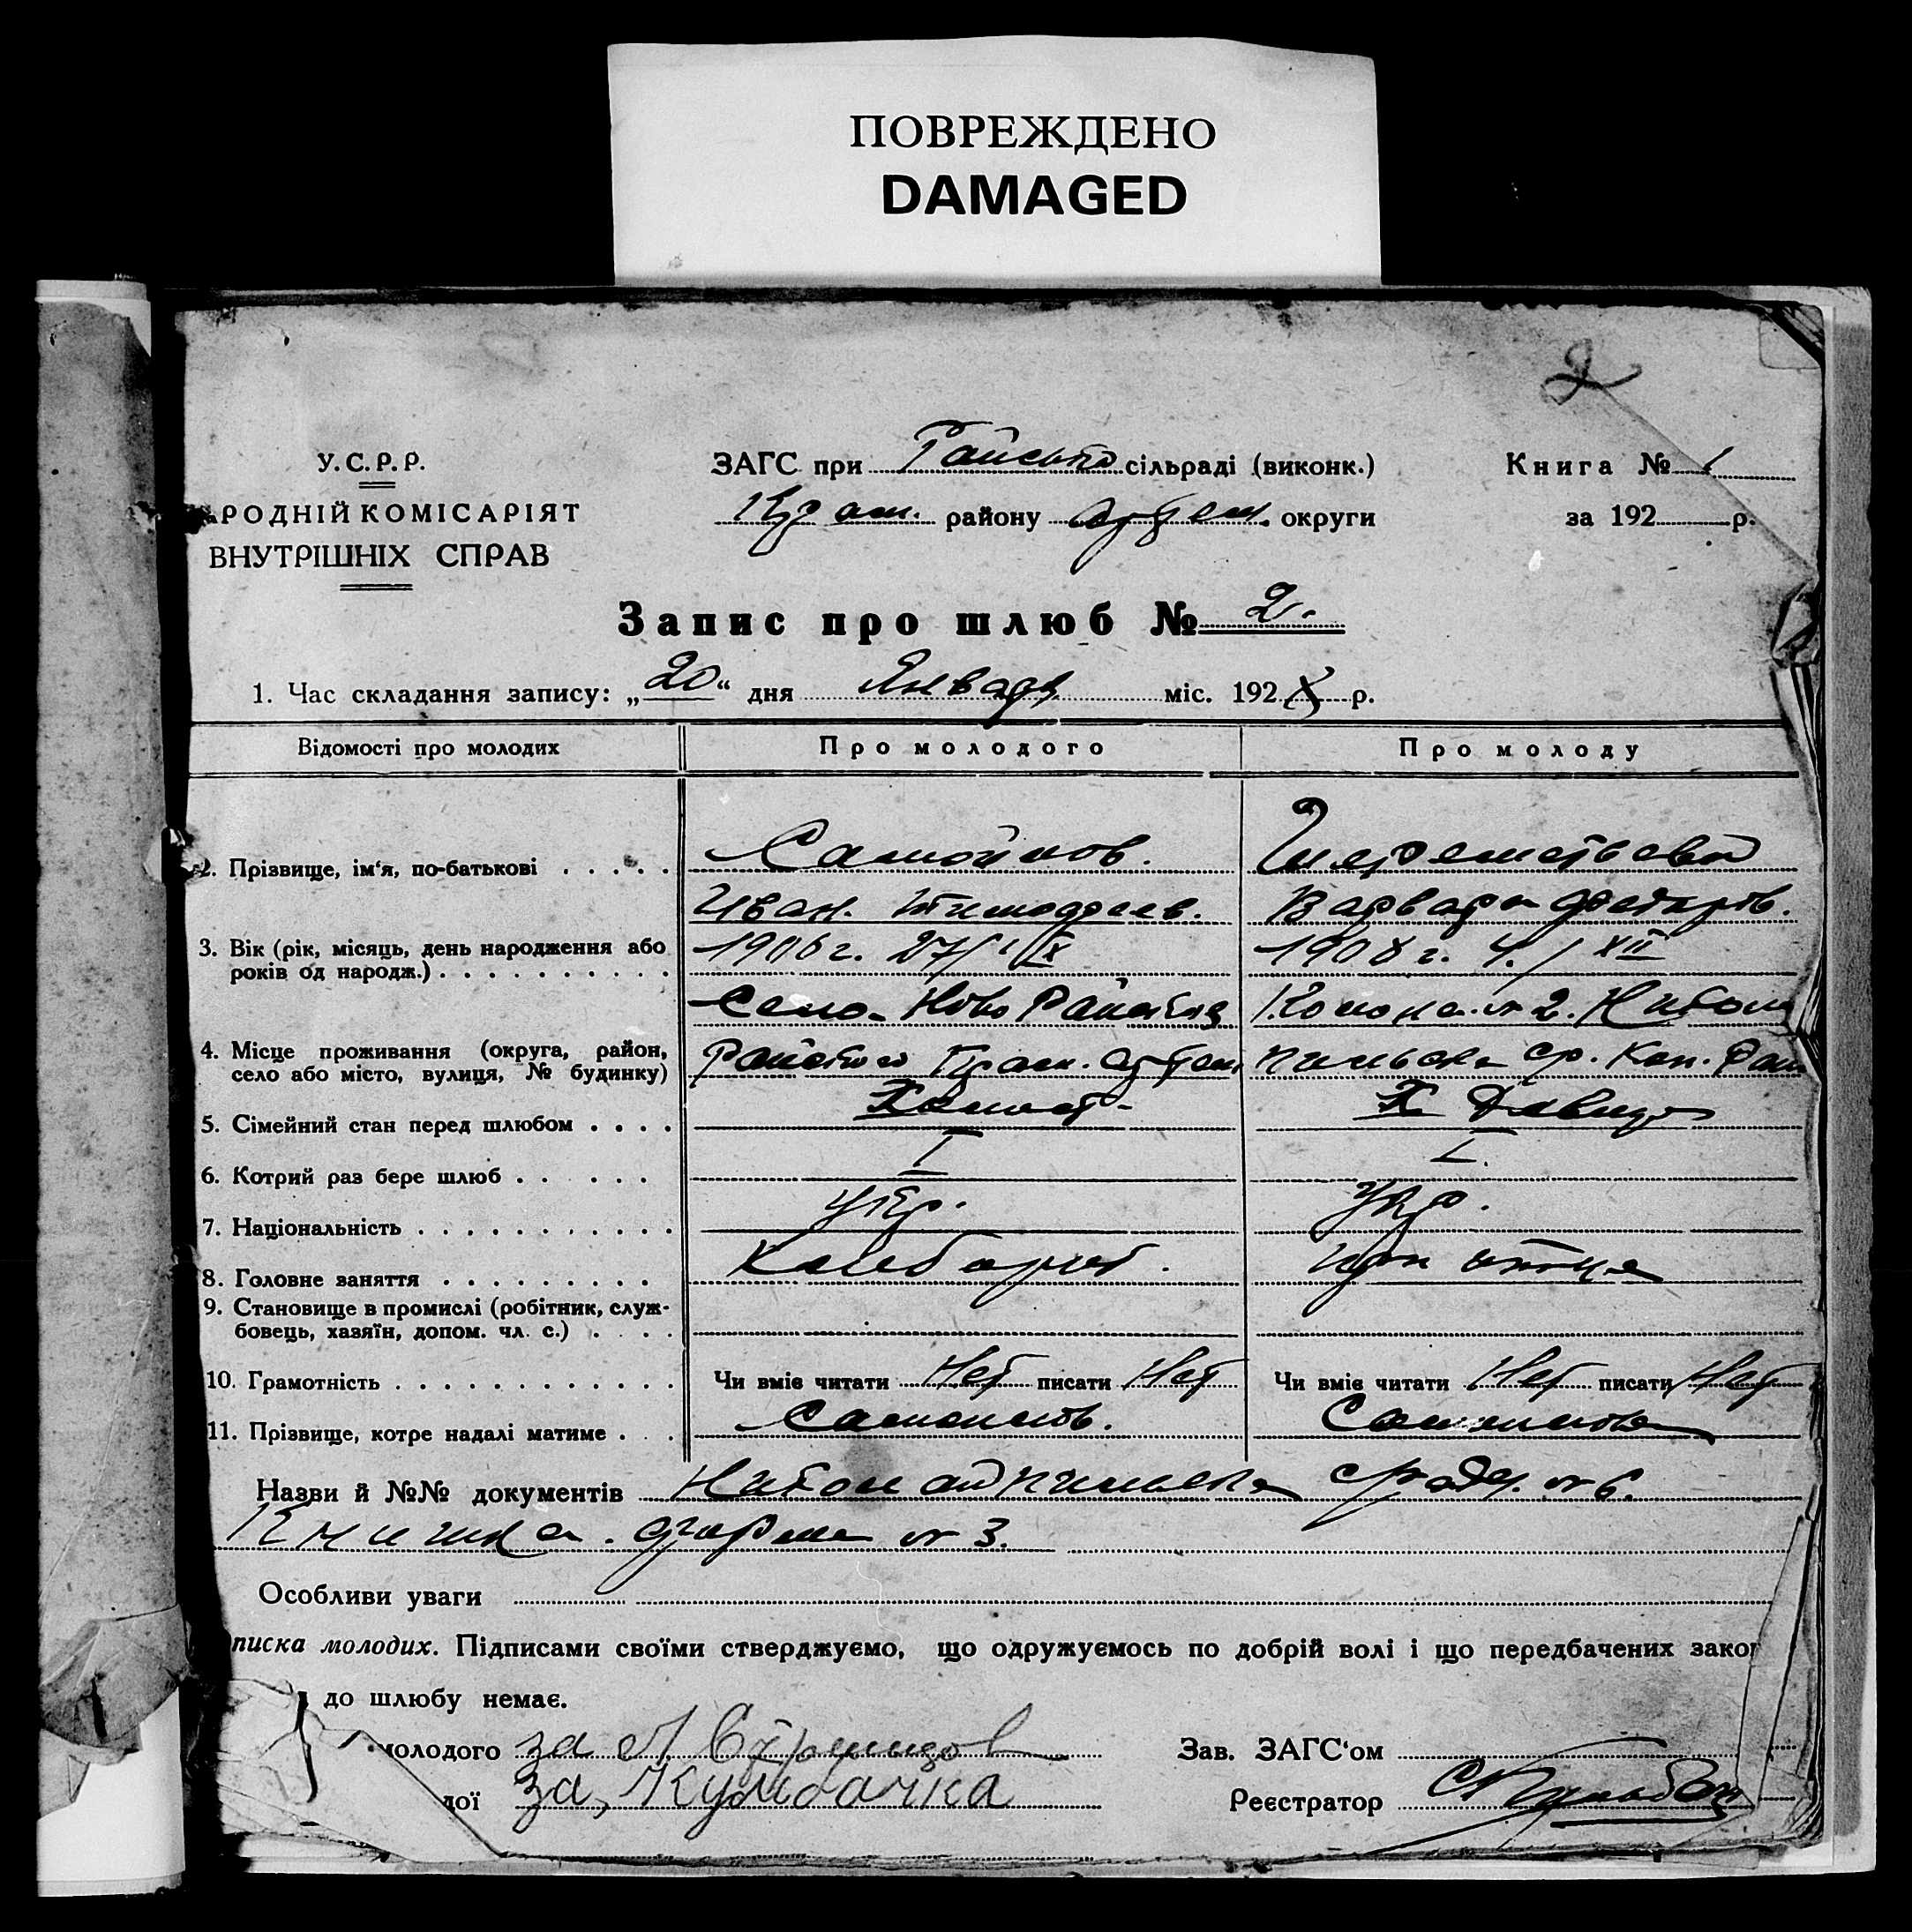 ПОВРЕЖДЕНО
DAMAGED
2
У.С.Р.Р.
РОДНІЙ КОМІСАРІЯТ
ВНУТРІШНІХ СПРАВ
ЗАГС при сільраді (виконк.)
району округи
Книга № 1
за 192 р.
Запис про шлюб № 2.
1. Час складання запису: „20“ дня Январь міс. 192 р.
Відомості про молодих Про молодого Про молоду
2. Прізвище, ім'я, по-батькові Самойлов. Шереметьева
Иван. Тимофеев. Варвара Федаров.
3. Вік (рік, місяць, день народження або 1906 г. 27/IX 1908 г. 4./XII
років од народж.)
Село Ново Райское № 2.
4. Місце проживання (округа, район,
село або місто, вулиця, № будинку)
5. Сімейний стан перед шлюбом Холост Девица
6. Котрий раз бере шлюб I I
7. Національність Укр. Укр.
8. Головне заняття Хлебороб. при отце
9. Становище в промислі (робітник, служ-
бовець, хазяїн, допом. чл. с.)
10. Грамотність Чи вміє читати Нет писати Нет Чи вміє читати Нет писати Нет
11. Прізвище, котре надалі матиме Самойлов. Самойлова
Назви й №№ документів № 6.
Книжка. форма № 3.
Особливи уваги
писка молодих. Підписами своїми стверджуємо, що одружуємось по добрій волі і що передбачених зако
до шлюбу немає.
молодого за
дої за
Зав. ЗАГС'ом
Реєстратор